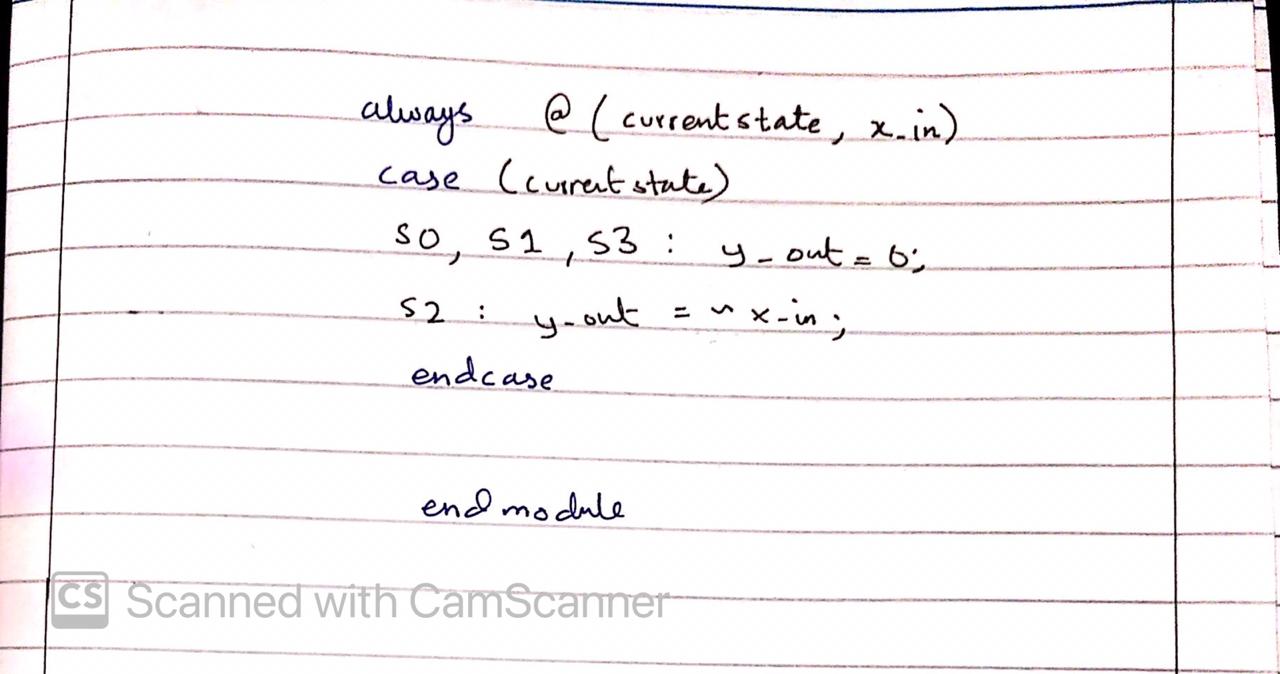 always @ (currentstate, x_in)
case (currentstate)
S0, S1, S3 : y_out = 0;
S2 : y_out = ~ x_in;
endcase
endmodule
CS Scanned with CamScanner